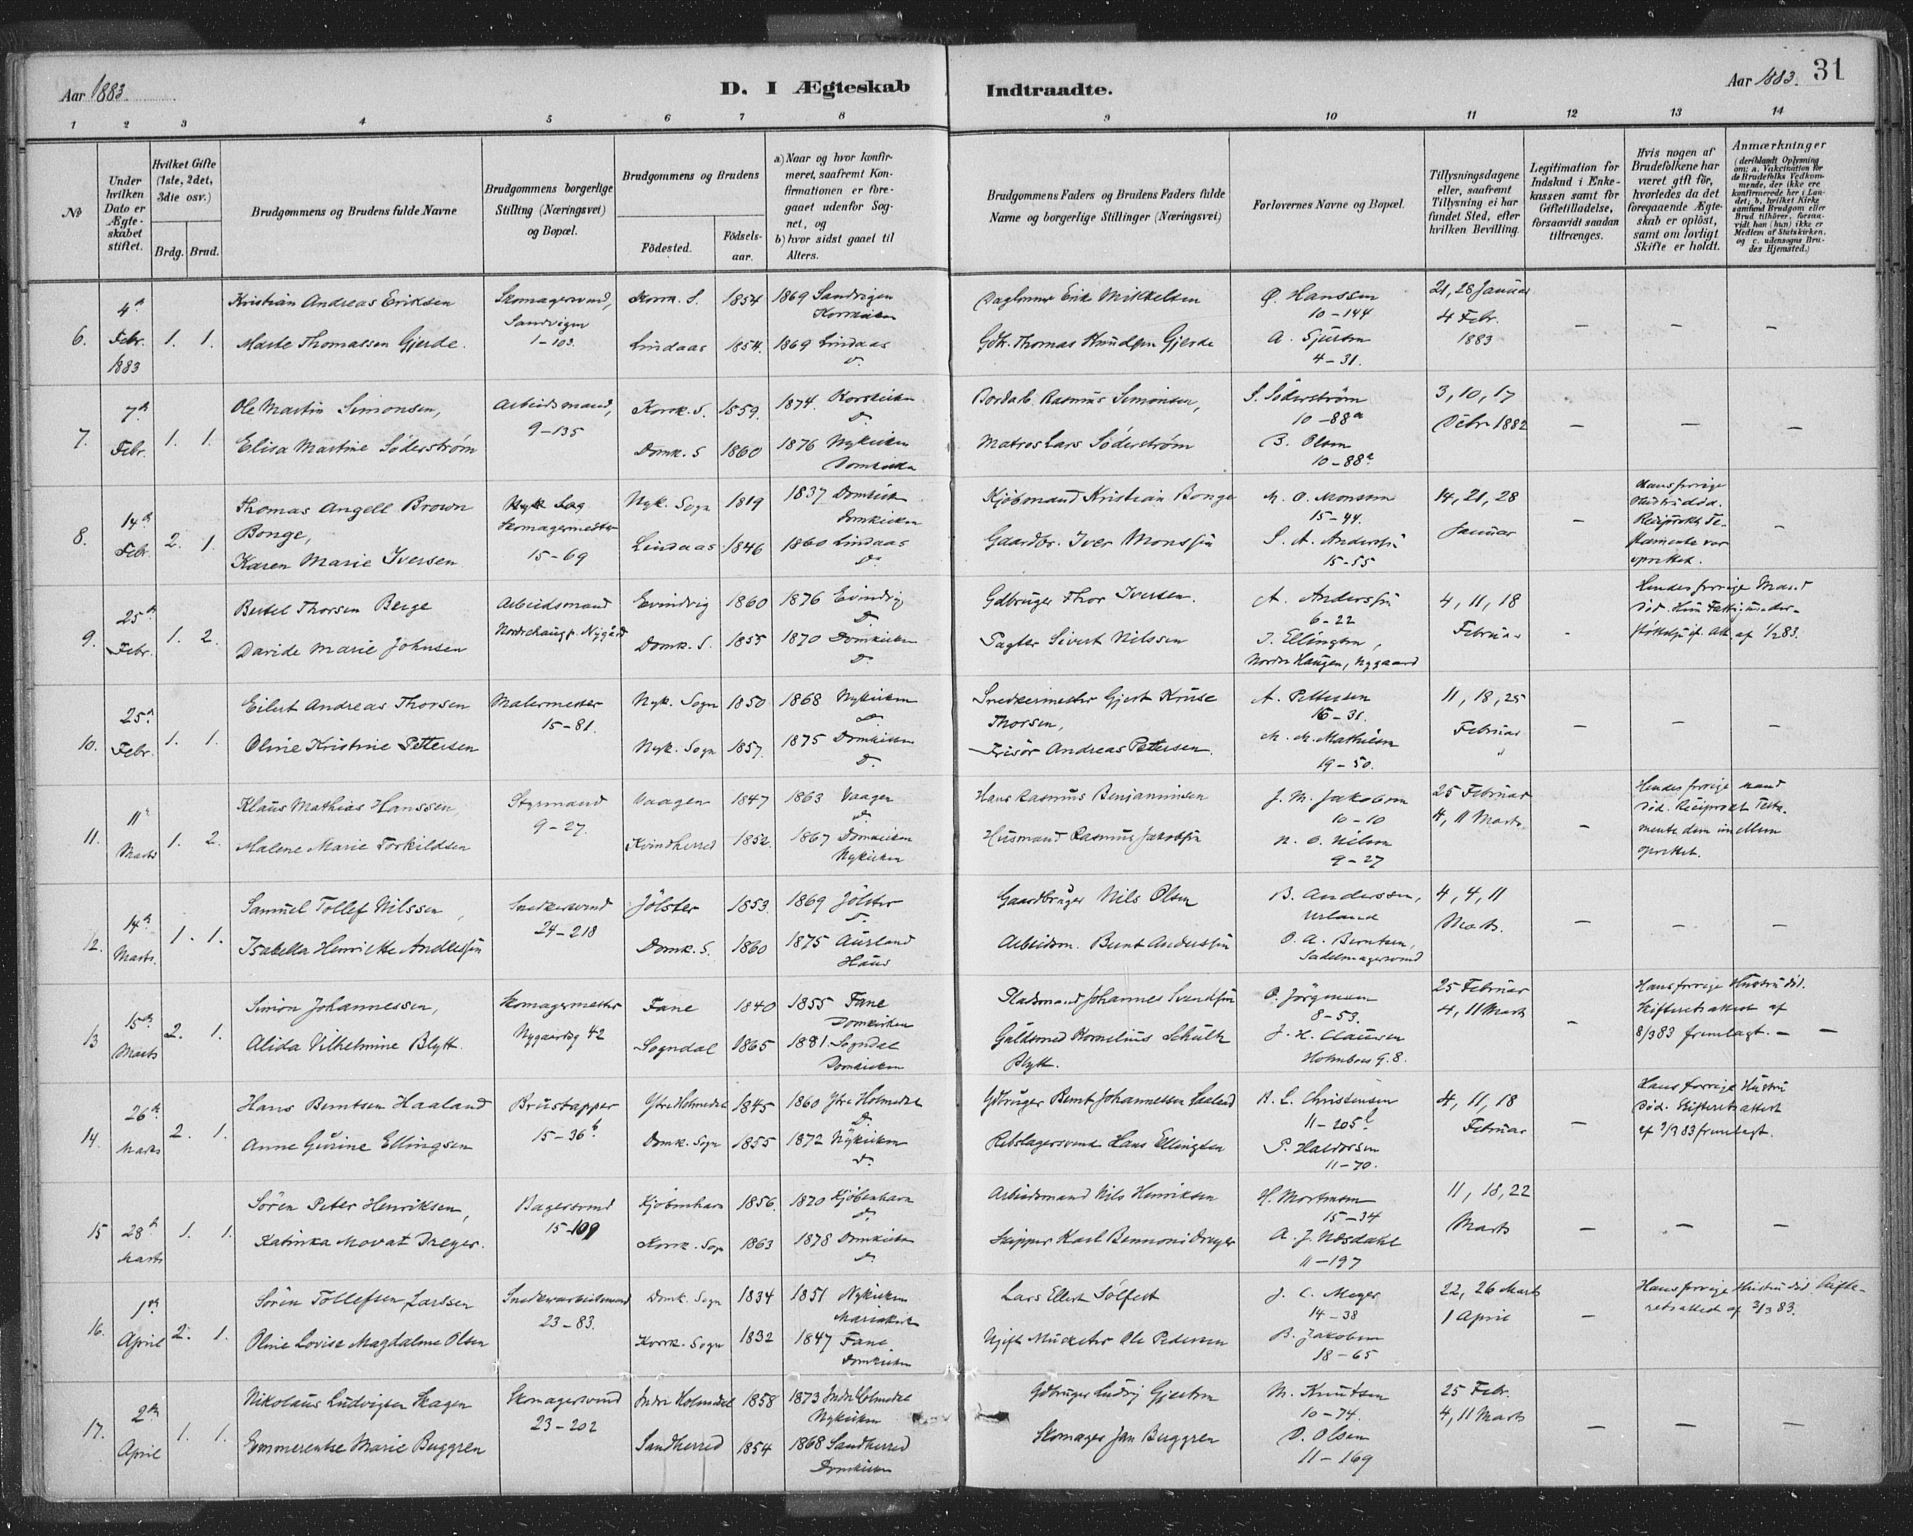 Aar 1883.
D. I Ægteskab Indtraadte.
Aar 1883. 31
1 2 3 4 5 6 7 8 9 10 11 12 13 14
No
Under hvilken Dato er Ægteskabet stiftet.
Hvilket Gifte (1ste, 2det, 3die osv.)
Brdg. Brud.
Brudgommens og Brudens fulde Navne
Brudgommens borgerlige Stilling (Næringsvei) og Bopæl.
Brudgommens og Brudens
Födested. Födselsaar.
a) Naar og hvor konfirmeret, saafremt Konfirmationen er foregaaet udenfor Sognet, og
b) hvor sidst gaaet til Alters.
Brudgommens Faders og Brudens Faders fulde Navne og borgerlige Stillinger (Næringsvei)
Forlovernes Navne og Bopæl.
Tillysningsdagene eller, saafremt Tillysning ei har fundet Sted, efter hvilken Bevilling.
Legitimation for Indskud i Enkekassen samt for Giftetilladelse, forsaavidt saadan tiltrænges.
Hvis nogen af Brudefolkene har været gift för, hvorledes da det foregaaende Ægteskab er oplöst, samt om lovligt Skifte er holdt.
Anmærkninger (deriblandt Oplysning om: a. Vakcination for de Brudefolks Vedkommende, der ikke ere konfirmerede her i Landet; b. hvilket Kirkesamfund Brudgom eller Brud tilhörer, forsaavidt han (hun) ikke er Medlem af Statskirken, og c. udensogns Brudes Hjemsted.)
6. 4de Febr. 1883 1. 1.
Kristian Andreas Eriksen Skomagersvend, Sandvigen 1-103. Korsk. S. 1854 1869 Sandvigen Korskirken Daglönner Erik Mikkelsen Ø. Hanssen 10-144 21, 28 Januar 4 Febr. 1883 – – –
Marte Thomassen Gjerde. Lindaas 1854. 1869 Lindaas D. Gdbr. Thomas Knudsen Gjerde A. 4-31.
7. 7de Febr. 1. 1.
Ole Martin Simonsen, Arbeidsmand, 9-135 Korsk. S. 1859. 1874. Korskirken D. Rasmus Simonsen, S. Söderström 10-88a 3, 10, 17 Debr 1882 – – –
Elisa Martine Söderström Domk. S 1860 1876 Nykirken Domkirken Matros Lars Söderström B. Olsen 10-88a
8. 14de Febr. 2. 1.
Thomas Angell Brown Bonge, Skomagermester 15-69 Nyk. Sogn 1819 1837 Domkirken Domkirken Kjöbmand Kristian Bonge M. O. Monsen 15-44. 14, 21, 28 Januar – Hans forrige Hustru död. Reciprokt Testamente var oprettet. –
Karen Marie Iversen Lindaas 1846 1860 Lindaas D. Gaardbr. Iver Monssen S. A. Anderssen 15-55
9. 25de Febr. 1. 2.
Bertel Thorsen Berge Arbeidsmand Nordrehaug p. Nygård Evindvig 1860 1876 Evindvig D. Gdbruger Thor Iversen. A. Anderssen 6-22 4, 11, 18 Februar – Hendes forrige Mand död. Hun Fattigunderstöttelse if. Att af 1/2 83.
Davide Marie Johnsen Domk. S. 1855 1870 Domkirken D. Sivert Nilssen J. Ellingsen, Nordre Haugen, Nygaard
10. 25de Febr. 1. 1.
Eilert Andreas Thorsen Malermester 15-81. Nyk. Sogn 1850 1868 Nykirken D. Snedkermester Gjert Kruse Thorsen, A. Pettersen 16-31. 11, 18, 25 Februar – – –
Oline Kristine Pettersen Nyk. Sogn 1857. 1875 Domkirken D. Frisör Andreas Pettersen. M. M. Mathiesen 19-50.
11. 11te Marts 1. 2.
Klaus Mathias Hanssen, Styrmand 9-27. Vaagen 1847 1863 Vaagen D. Hans Rasmus Benjaminsen J. M. Jakobsen 10-10 25 Februar 4, 11 Marts – Hendes forrige Mand död. Reciprokt Testamente dem imellem oprettet.
Malene Marie Torkildsen Kvindherred 1852. 1867 Domkirken Nykirken Husmand Rasmus Jakobsen N. O. Nilsen 9-27
12. 14de Marts. 1. 1.
Samuel Tollef Nilssen, Snedkersvend 24-218 Jölster 1853. 1869 Jölster D. Gaardbruger Nils Olsen B. Anderssen, Urland 4, 4, 11 Marts. – – –
Isabella Henriette Anderssen Domk. S. 1860 1875 Aurland Haus Arbeidsm. Bernt Anderssen O. A. Berntsen, Sadelmagersvend
13 15de Marts 2. 1.
Simon Johannessen, Skomagermester Nygaardsg 42 Fane 1840 1855 Fane Domkirken Pladsmand Johannes Svendsen O. Jörgensen 8-53. 25 Februar 4, 11 Marts – Hans forrige Hustru död. Skifteretsattest af 8/3 83 fremlagt. – –
Alida Vilhelmine Blytt. Sogndal 1865 1881 Sogndal Domkirken Guldsmed Kornelius Schultz Blytt. J. H. Clausen Holmboes G. 8.
14. 26de Marts 2. 1.
Hans Berntsen Haaland Brustapper 15-36b Ytre Holmedal 1845 1860 Ytre Holmedal D. Gdbruger Bernt Johannessen Haaland B. L. Christensen 11-205b 4, 11, 18 Februar – Hans forrige Hustru död. Skifteretsattest af 7/3 83 fremlagt.
Anne Gurine Ellingsen Domk. Sogn 1855 1872 Nykirken D. Rebslagersvend Hans Ellingsen P. Haldorsen 11-70.
15 28de Marts 1. 1.
Sören Peter Henriksen, Bagersvend 15-109 Kjöbenhavn 1856. 1870 Kjöbenhavn D. Arbeidsmand Nils Henriksen H. Mortensen 15-34 11, 18, 22 Marts – – –
Katinka Movat Dreyer. Korsk. Sogn 1863 1878 Domkirken D. Skipper Karl Bennoni Dreyer A. J. Næsdahl 11-197
16. 1ste April 2. 1.
Sören Tollefsen Larssen Snedkerarbeidsmand 23-83. Domk. Sogn 1834 1851 Nykirken Mariakirk Lars Ellert Sölfest J. C. Meyer 14-38 22, 26 Marts 1 April – Hans forrige Hustru död. Skifteretsattest af 2/3 83.
Oline Lovise Magdalene Olsen Korsk. Sogn 1832 1847 Fane. Domkirken Ugift Musketer Ole Pedersen B. Jakobsen 18-65
17. 2den April 1. 1.
Nikolaus Ludvigsen Skagen Skomagersvend 23-202 Indre Holmedal 1858 1873 Indre Holmedal Nykirken Gdbruger Ludvig Gjertsen M. Knutsen 10-74. 25 Febr. 4, 11 Marts – – –
Emmerentse Marie Buggren Sandherred 1854 1868 Sandherred Domkirken Skomager Jan Buggren D. Olsen 11-169